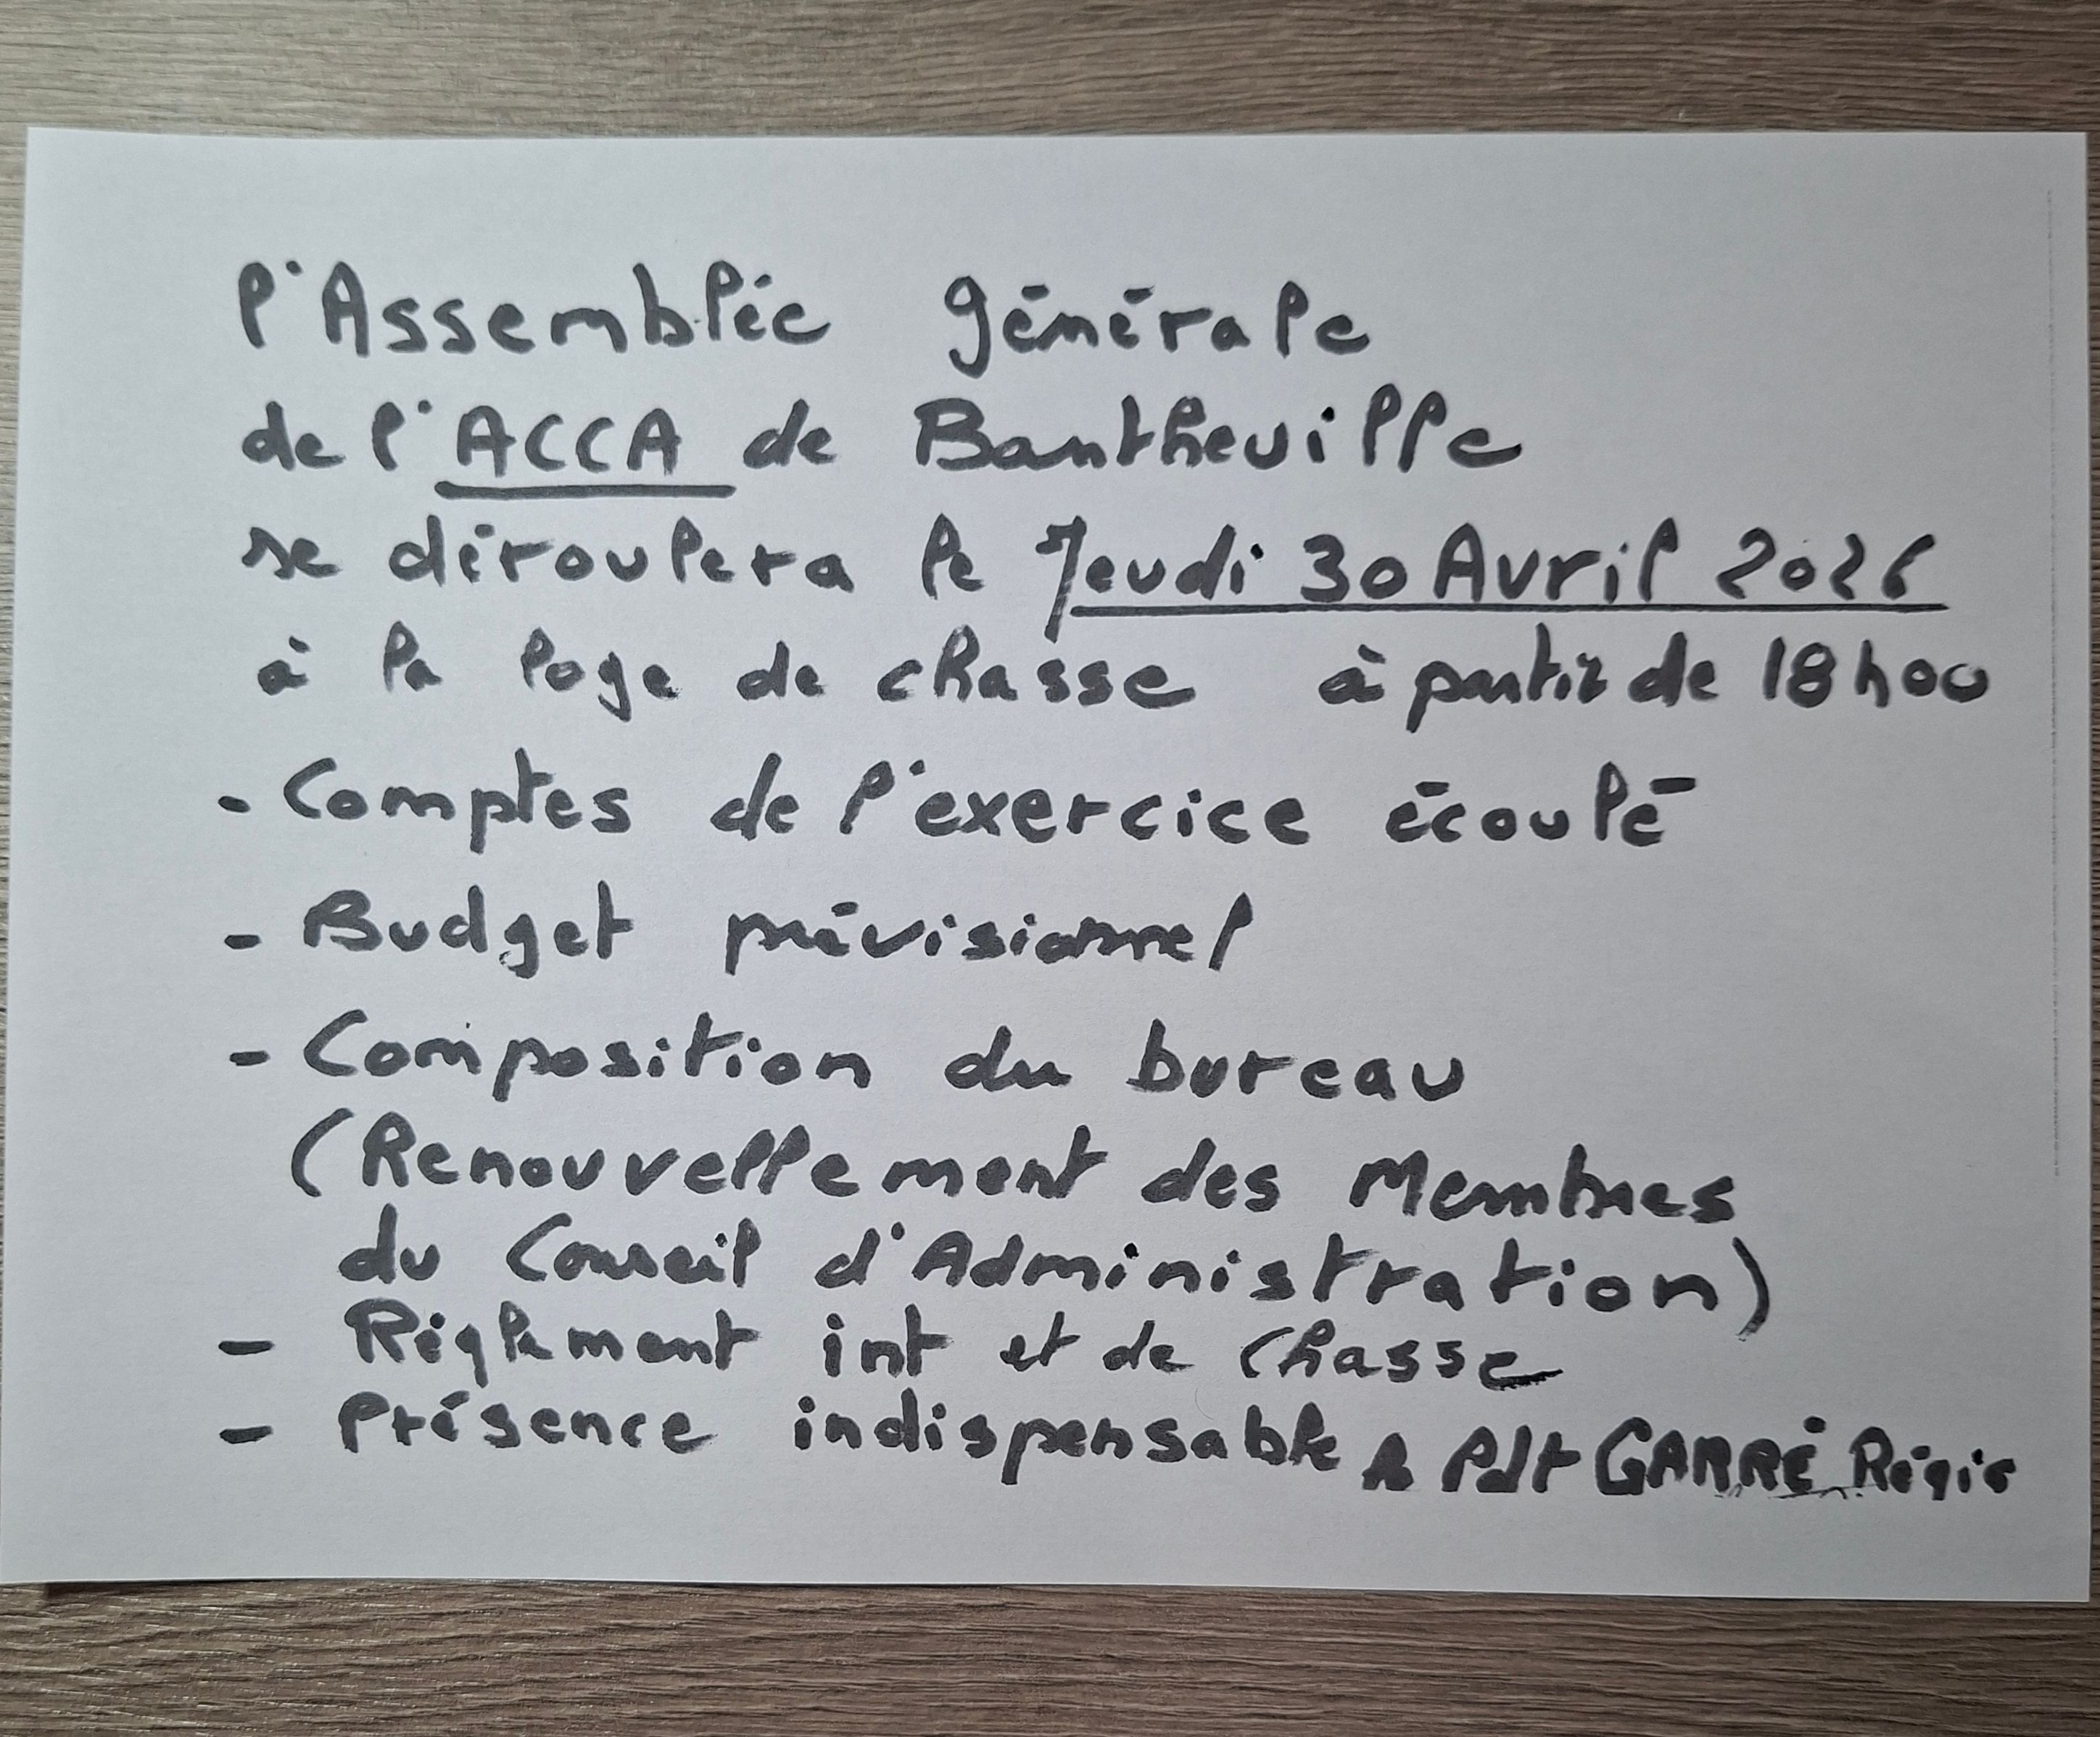 l'Assemblée générale
de l'ACCA de Bantheville
se déroulera le Jeudi 30 Avril 2026
à la loge de chasse à partir de 18h00
- Comptes de l'exercice écoulé
- Budget prévisionnel
- Composition du bureau
(Renouvellement des Membres
du Conseil d'Administration)
- Réglement int et de chasse
- Présence indispensable le Pdt GARRÉ Régis